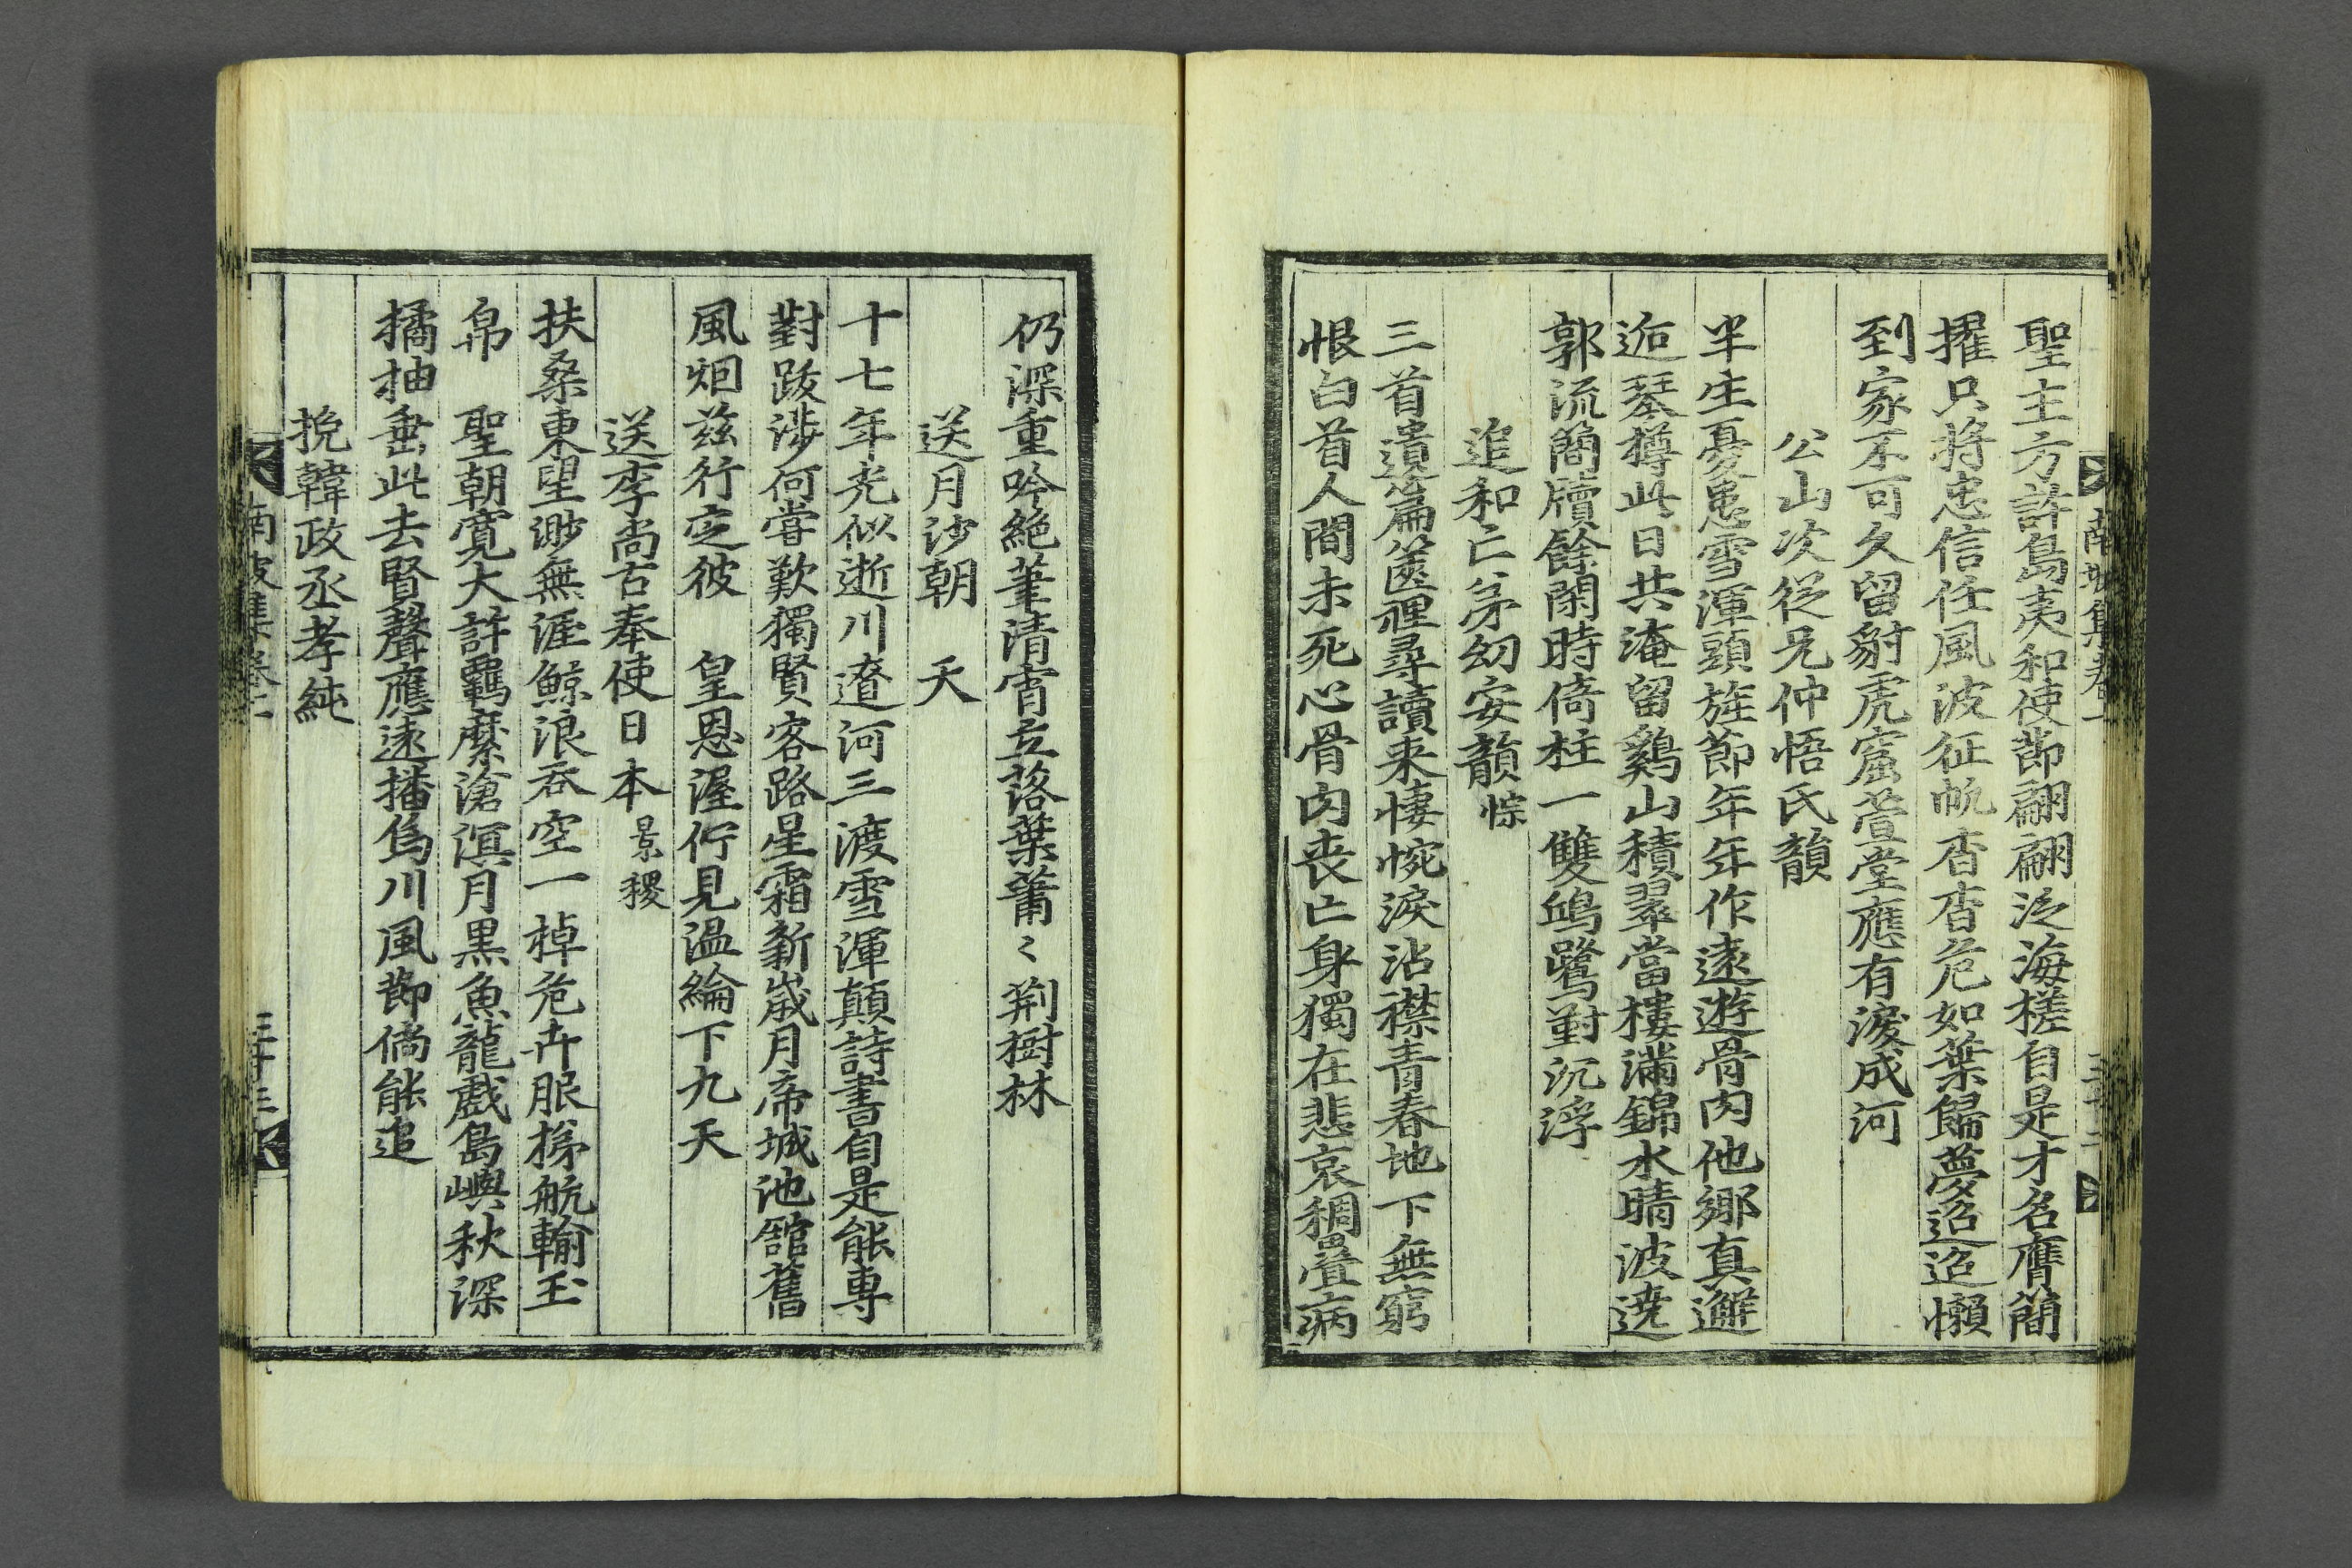 聖主方許島夷和使節翩翩泛海槎自是才名膺簡
擢只將忠信任風波征帆杳杳危如葉歸夢迢迢懶
到家不可久留豺虎窟萱堂應有淚成河
公山次從兄仲悟氏韻
半生憂患雪渾頭旌節年年作遠遊骨肉他鄉真邂
逅琴樽此日共淹留鷄山積翠當樓滿錦水晴波遶
郭流簡牘餘閑時倚柱一雙鳩鷺對沉浮
追和亡弟幼安韻悰
三首遺篇篋裡尋讀来悽惋淚沾襟青春地下無窮
恨白首人間未死心骨肉丧亡身獨在悲哀稠疊病
仍深重吟絶筆清宵立落葉蕭〻荆樹林
送月沙朝 天
十七年光似逝川遼河三渡雪渾顛詩書自是能專
對跋涉何嘗歎獨賢客路星霜新歲月帝城池舘舊
風烟茲行定彼 皇恩渥佇見温綸下九天
送李尚古奉使日本景稷
扶桑東望渺無涯鯨浪呑空一棹危卉服梯航輸玉
帛 聖朝寬大許羈縻滄溟月黒魚龍戲島嶼秋深
橘柚垂此去賢聲應遠播烏川風節倘能追
挽韓政丞孝純
南坡集卷二
三十三